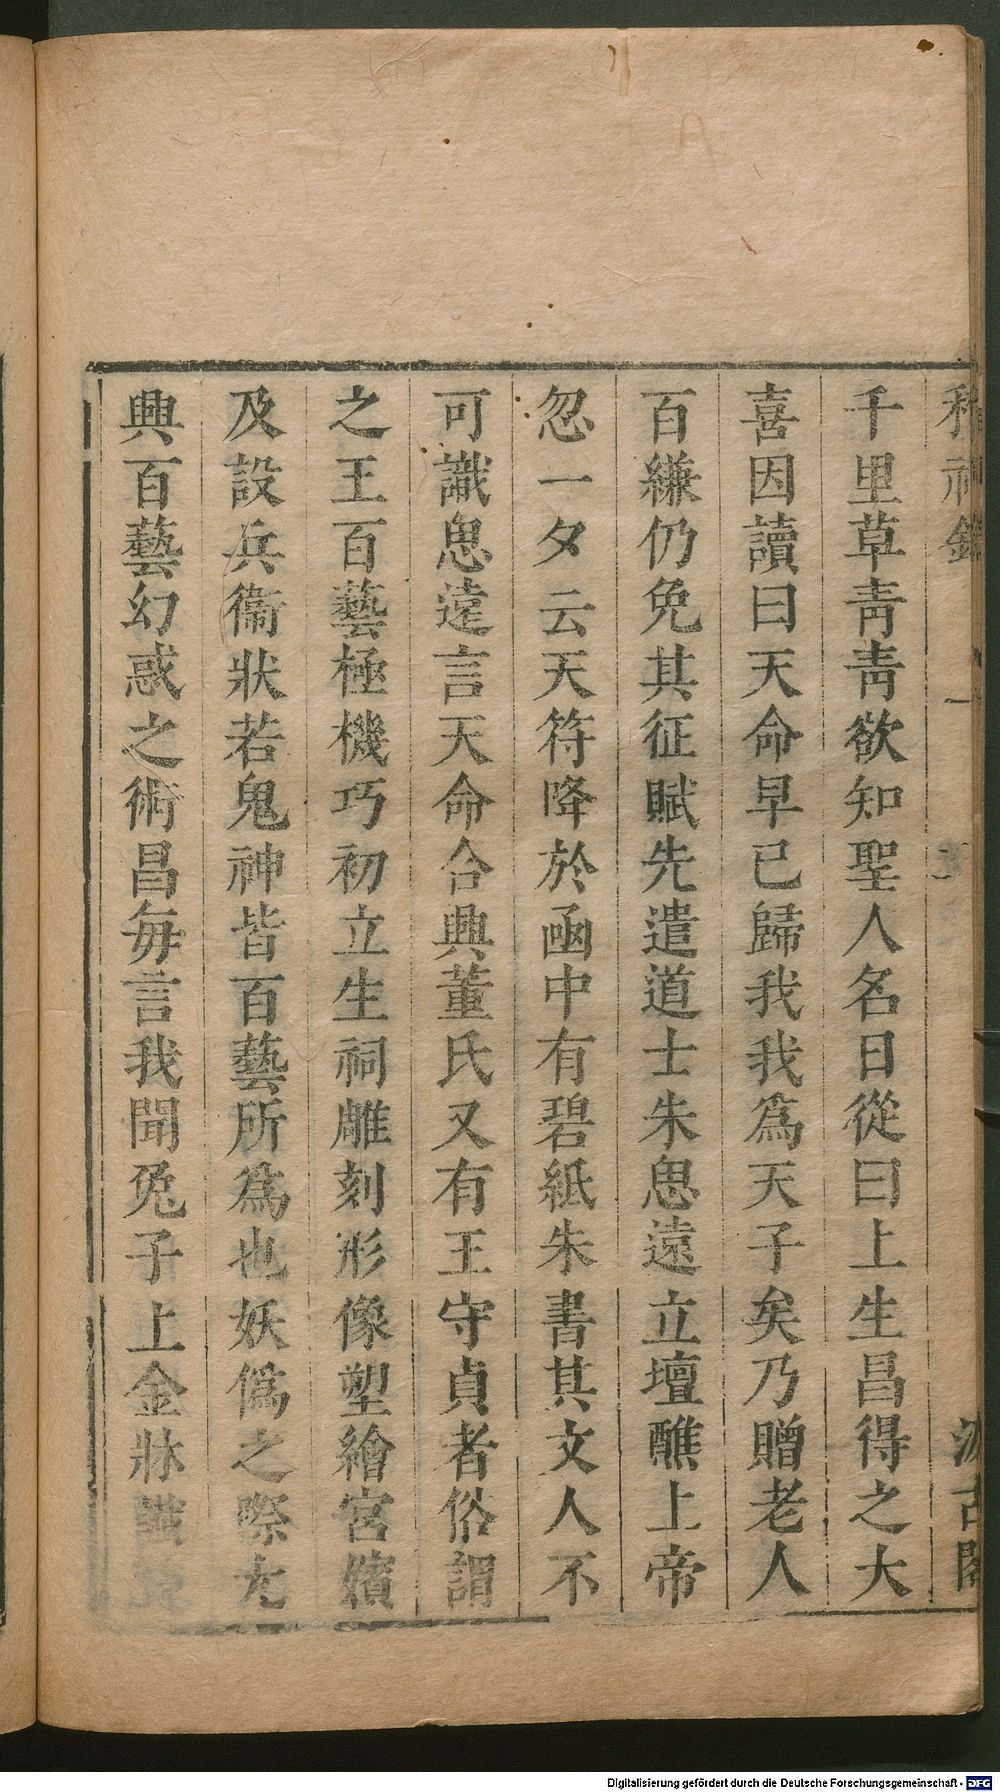 千里草青青欲知聖人名日從曰上生昌得之大
喜因讀曰天命早已歸我我為天子矣乃贈老人
百縑仍免其征賦先遣道士朱思遠立壇醮上帝
忽一夕云天符降於凾中有碧紙朱書其文人不
可識思遠言天命合興董氏又有王守貞者俗謂
之王百藝極機巧初立生祠雕刻形像塑繪宮嬪
及設兵衞狀若鬼神皆百藝所為也妖僞之際大
興百藝幻惑之術昌每言我聞兎子上金牀讖
Digitalisierung gefördert durch die Deutsche Forschungsgemeinschaft - DFG